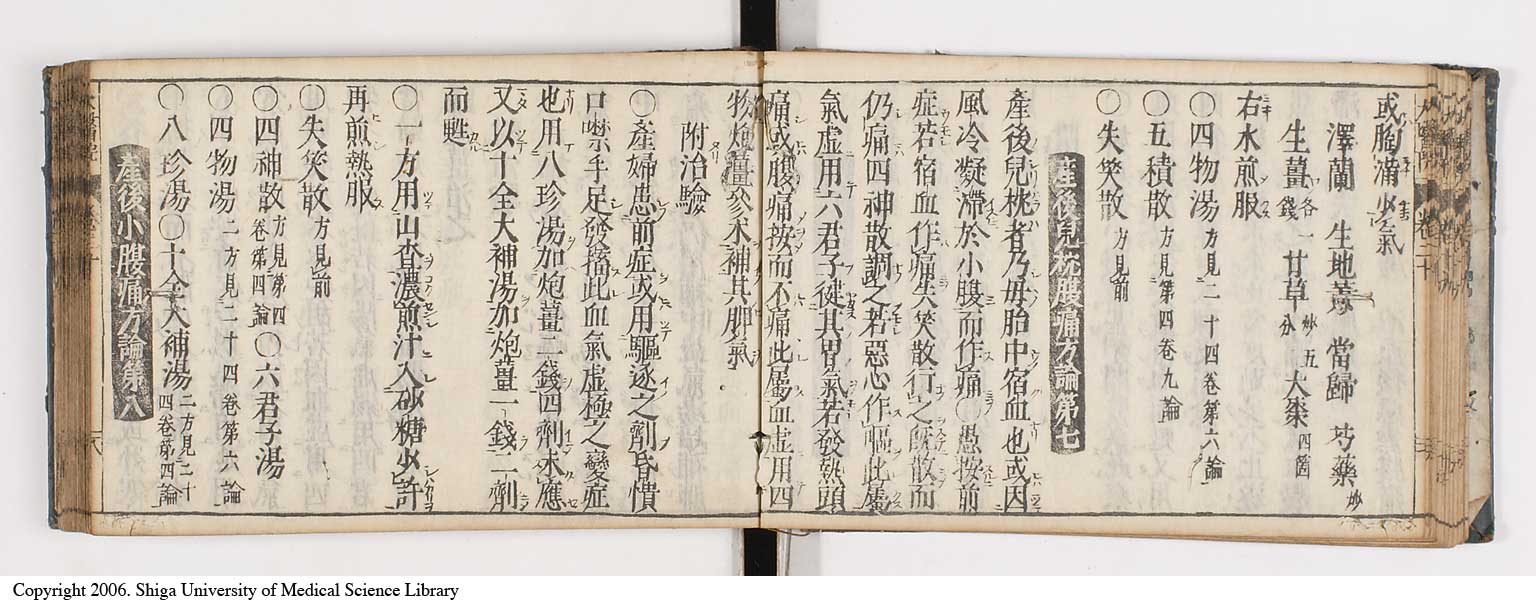 或胸滿少氣
澤蘭 生地黃 當歸 芍藥炒
生薑各一錢 甘草炒五分 大棗四箇
右水煎服
○四物湯方見二十四卷第六論
○五積散方見第四卷九論
○失笑散方見前
產後兒枕腹痛方論第七
產後兒枕者乃母胎中宿血也或因
風冷凝滯於小腹而作痛○愚按前
症若宿血作痛失笑散行之旣散而
仍痛四神散調之若惡心作嘔此屬
氣虛用六君子徤其胃氣若發熱頭
痛或腹痛按而不痛此屬血虛用四
物炮薑參朮補其脾氣
附治驗
○產婦患前症或用驅逐之劑昏憒
口噤手足發搐此血氣虛極之變症
也用八珍湯加炮薑二錢四劑未應
又以十全大補湯加炮薑一錢二劑
而甦
○一方用山查濃煎汁入砂糖少許
再煎熱服
○失笑散方見前
○四神散方見第四卷第四論○六君子湯
○四物湯二方見二十四卷第六論
○八珍湯○十全大補湯二方見二十四卷第四論
產後小腹痛方論第八
卷二十
八
Copyright 2006. Shiga University of Medical Science Library